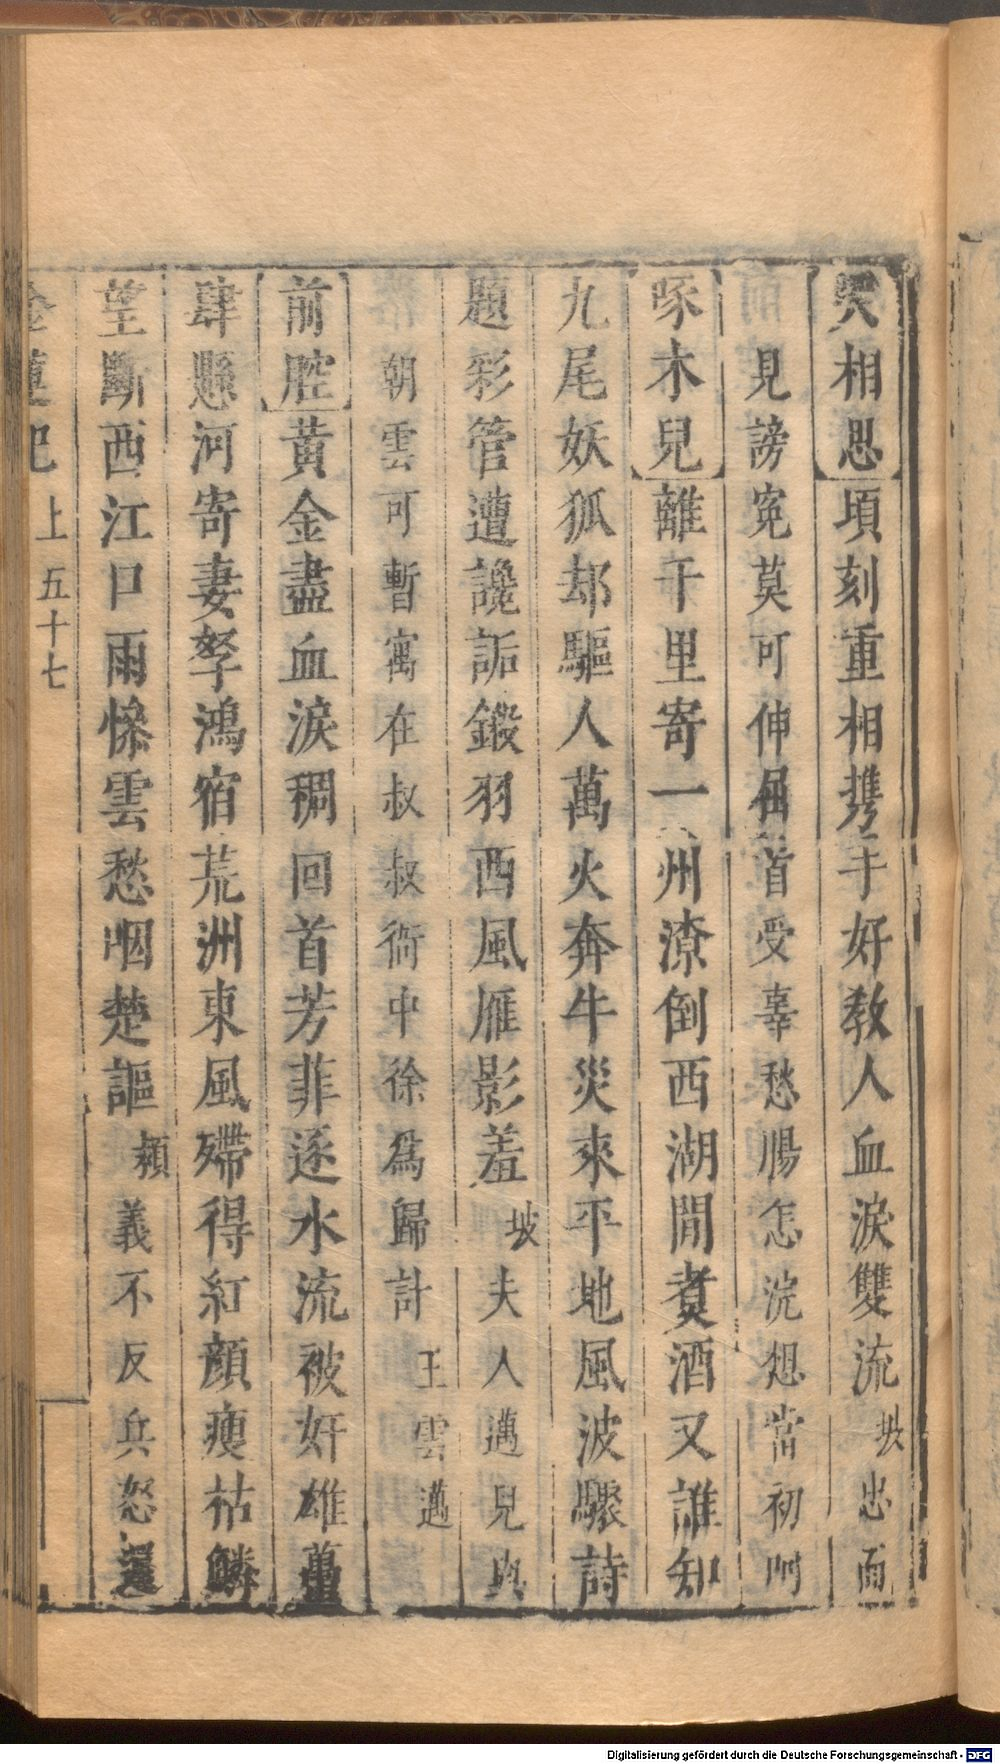 哭相思頃刻重相携手好教人血淚雙流坡忠而
見謗寃莫可伸屈首受辜愁腸怎浣想當初
啄木兒離千里寄一州潦倒西湖間煑酒又誰知
九尾妖狐却驅人萬火奔牛災來平地風波驟詩
題彩管遭讒詬鍛羽西風雁影羞坡夫人邁兒與
朝雲可暫寓在叔叔衙中徐爲歸計王雲邁
前腔黃金盡血淚稠回首芳菲逐水流被奸雄
肆懸河寄妻孥鴻宿荒洲東風殢得紅顔瘦枯鱗
望斷西江口雨慘雲愁咽楚謳頼義不反兵怒還
金蓮記 上 五十七
Digitalisierung gefördert durch die Deutsche Forschungsgemeinschaft - DFG